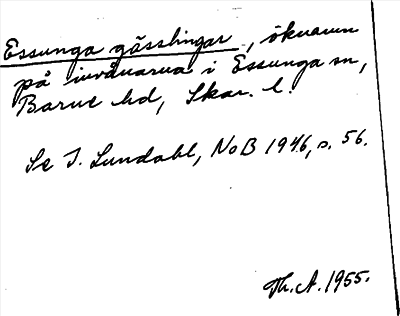 Essunga gässlingar, öknamn
på invånarna i Essunga sn,
Barne hd, Skar. l.
Se I. Lundahl, NoB 1946, s. 56.
Th. A. 1955.